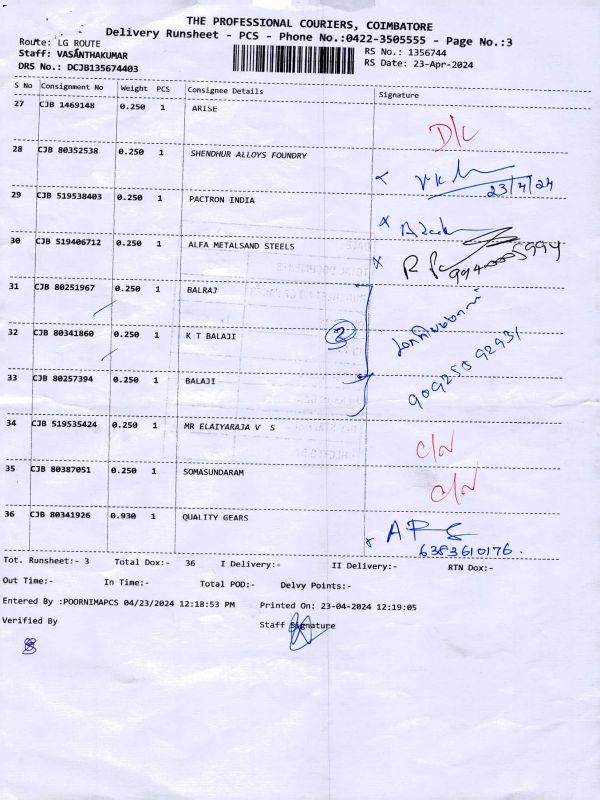 THE PROFESSIONAL COURIERS, COIMBATORE
Delivery Runsheet - PCS - Phone No.:0422-3505555 - Page No.:3
Route: LG ROUTE
RS No.: 1356744
Staff: VASANTHAKUMAR
RS Date: 23-Apr-2024
DRS No.: DCJB135674403
S No Consignment No Weight PCS Consignee Details Signature
27 CJB 1469148 0.250 1 ARISE
D/L
28 CJB 80352538 0.250 1 SHENDHUR ALLOYS FOUNDRY
23/4/24
29 CJB 519538403 0.250 1 PACTRON INDIA
30 CJB 519406712 0.250 1 ALFA METALSAND STEELS
31 CJB 80251967 0.250 1 BALRAJ
32 CJB 80341860 0.250 1 K T BALAJI
2
33 CJB 80257394 0.250 1 BALAJI
9092509 2931
34 CJB 519535424 0.250 1 MR ELAIYARAJA V S
C/N
35 CJB 80387051 0.250 1 SOMASUNDARAM
C/N
36 CJB 80341926 0.930 1 QUALITY GEARS
6383610176.
Tot. Runsheet:- 3 Total Dox:- 36 I Delivery:- II Delivery:- RTN Dox:-
Out Time:- In Time:- Total POD:- Delvy Points:-
Entered By :POORNIMAPCS 04/23/2024 12:18:53 PM Printed On: 23-04-2024 12:19:05
Verified By Staff Signature